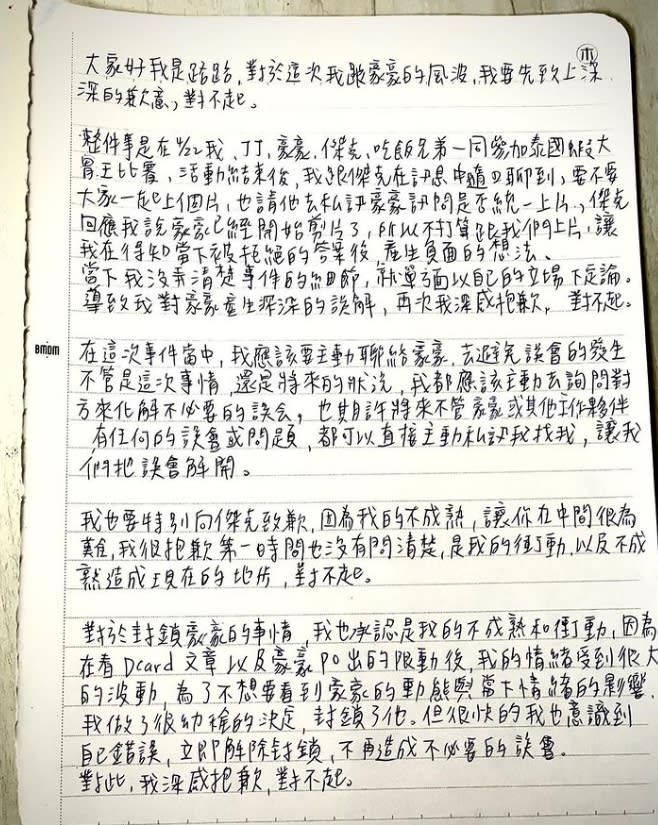 木
大家好我是路路,對於這次我跟豪豪的風波,我要先致上深
深的歉意,對不起。
整件事是在4/22我、JJ、豪豪、傑克、吃飯兄弟一同參加泰國蝦大
胃王比賽,活動結束後,我跟傑克在訊息中隨口聊到,要不要
大家一起上個片,也請他去私訊豪豪詢問是否統一上片,傑克
回應我說豪豪已經開始剪片了,所以不打算跟我們上片,讓
我在得知當下被拒絕的答案後,產生負面的想法、
當下我沒弄清楚事件的細節,就單方面以自己的立場下定論。
導致我對豪豪產生深深的誤解,再次我深感抱歉,對不起。
BMDM
在這次事件當中,我應該要主動聯絡豪豪,去避免誤會的發生
不管是這次事情,還是將來的狀況,我都應該主動去詢問對
方來化解不必要的誤會,也期許將來不管豪豪或其他工作夥伴
有任何的誤會或問題,都可以直接主動私訊我找我,讓我
們把誤會解開。
我也要特別向傑克致歉,因為我的不成熟,讓你在中間很為
難,我很抱歉第一時間也沒有問清楚,是我的衝動,以及不成
熟造成現在的地步,對不起。
對於封鎖豪豪的事情,我也承認是我的不成熟和衝動,因為
在看Dcard文章以及豪豪PO出的限動後,我的情緒受到很大
的波動,為了不想要看到豪豪的動態與當下情緒的影響
我做了很幼稚的決定,封鎖了他。但很快的我也意識到
自己錯誤,立即解除封鎖,不再造成不必要的誤會。
對此,我深感抱歉,對不起。